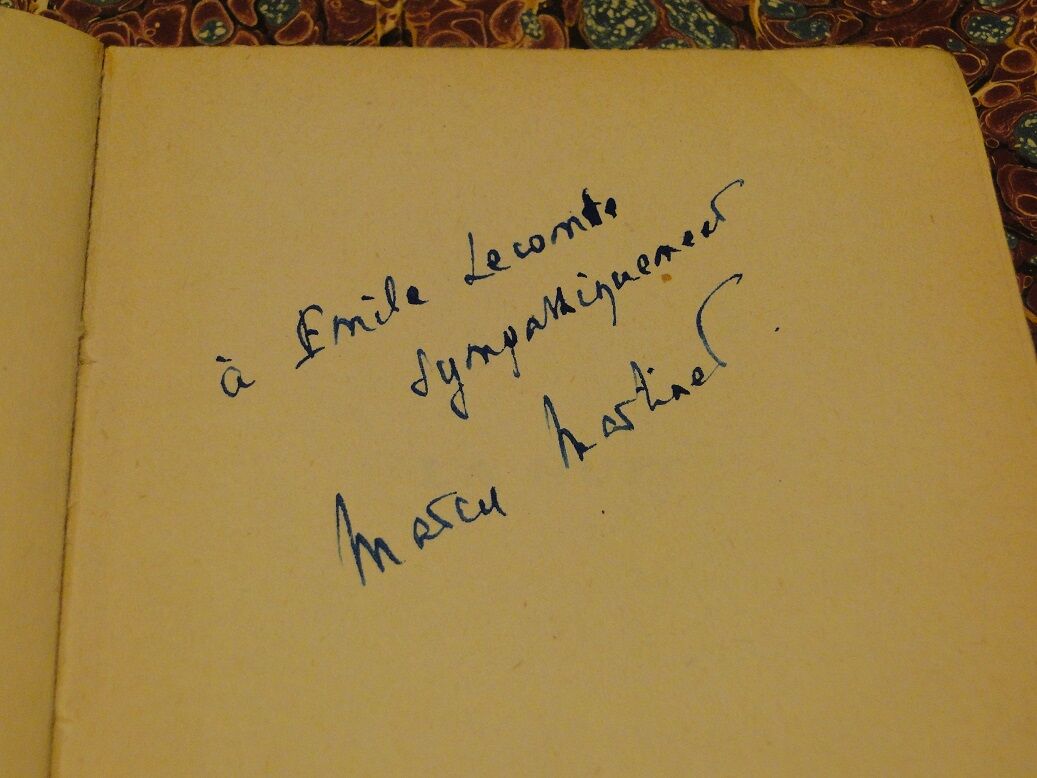 à Emile Lecomte
sympathiquement
Marcel Martinet